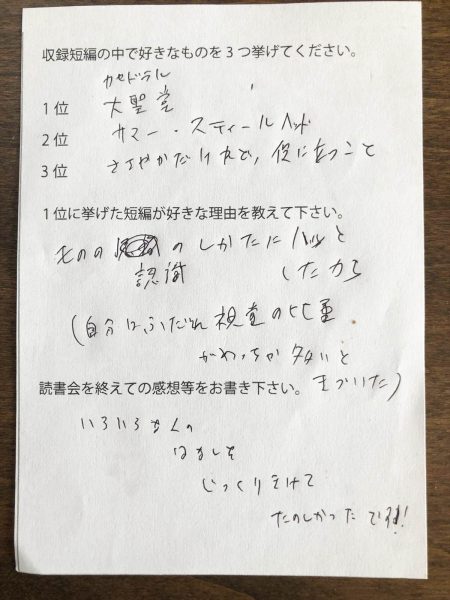 収録短編の中で好きなものを3つ挙げてください。
カセドラル
1位 大聖堂
2位 サマー・スティールヘッド
3位 ささやかだけれど、役に立つこと
1位に挙げた短編が好きな理由を教えて下さい。
ものの のしかたにハッと
認識 したから
(自分はふだん視覚の比重
がめっちゃ多いと
読書会を終えての感想等をお書き下さい。 気づいた)
いろいろな人の
はなしを
じっくりきけて
たのしかったです!